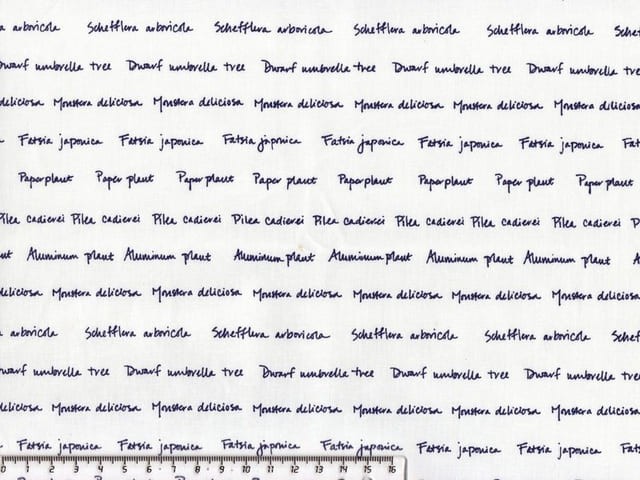 a arboricola Schefflera arboricola Schefflera arboricola Schefflera arboricola Schefflera arboricola Schef
Dwarf umbrella tree Dwarf umbrella tree Dwarf umbrella tree Dwarf umbrella tree Dwarf umbrella tre
deliciosa Monstera deliciosa Monstera deliciosa Monstera deliciosa Monstera deliciosa Monstera deliciosa Monstera deliciosa
Fatsia japonica Fatsia japonica Fatsia japonica Fatsia japonica Fatsia japonica Fatsia japonica Fat
Paper plant Paper plant Paper plant Paper plant Paper plant Paper plant Paper plant Paper plant
Pilea cadierei Pilea cadierei Pilea cadierei Dilea cadierei Pilea cadierei Pilea cadierei Pilea cadierei Pilea cadierei P
nt Aluminum plant Aluminum plant Aluminum plant Aluminum plant Aluminum plant Aluminum plant A
deliciosa Monstera deliciosa Monstera deliciosa Monstera deliciosa Monstera deliciosa Monstera deliciosa Monstera deliciosa
a arboricola Schefflera arboricola Schefflera arboricola Schefflera arboricola Schefflera arboricola Schef
Dwarf umbrella tree Dwarf umbrella tree Dwarf umbrella tree Dwarf umbrella tree Dwarf umbrella tree
deliciosa Monstera deliciosa Monstera deliciosa Monstera deliciosa Monstera deliciosa Monstera deliciosa Monstera deliciosa
Fatsia japonica Fatsia japonica Fatsia japonica Fatsia japonica Fatsia japonica Fatsia japonica Fats
0 1 2 3 4 5 6 7 8 9 10 11 12 13 14 15 16